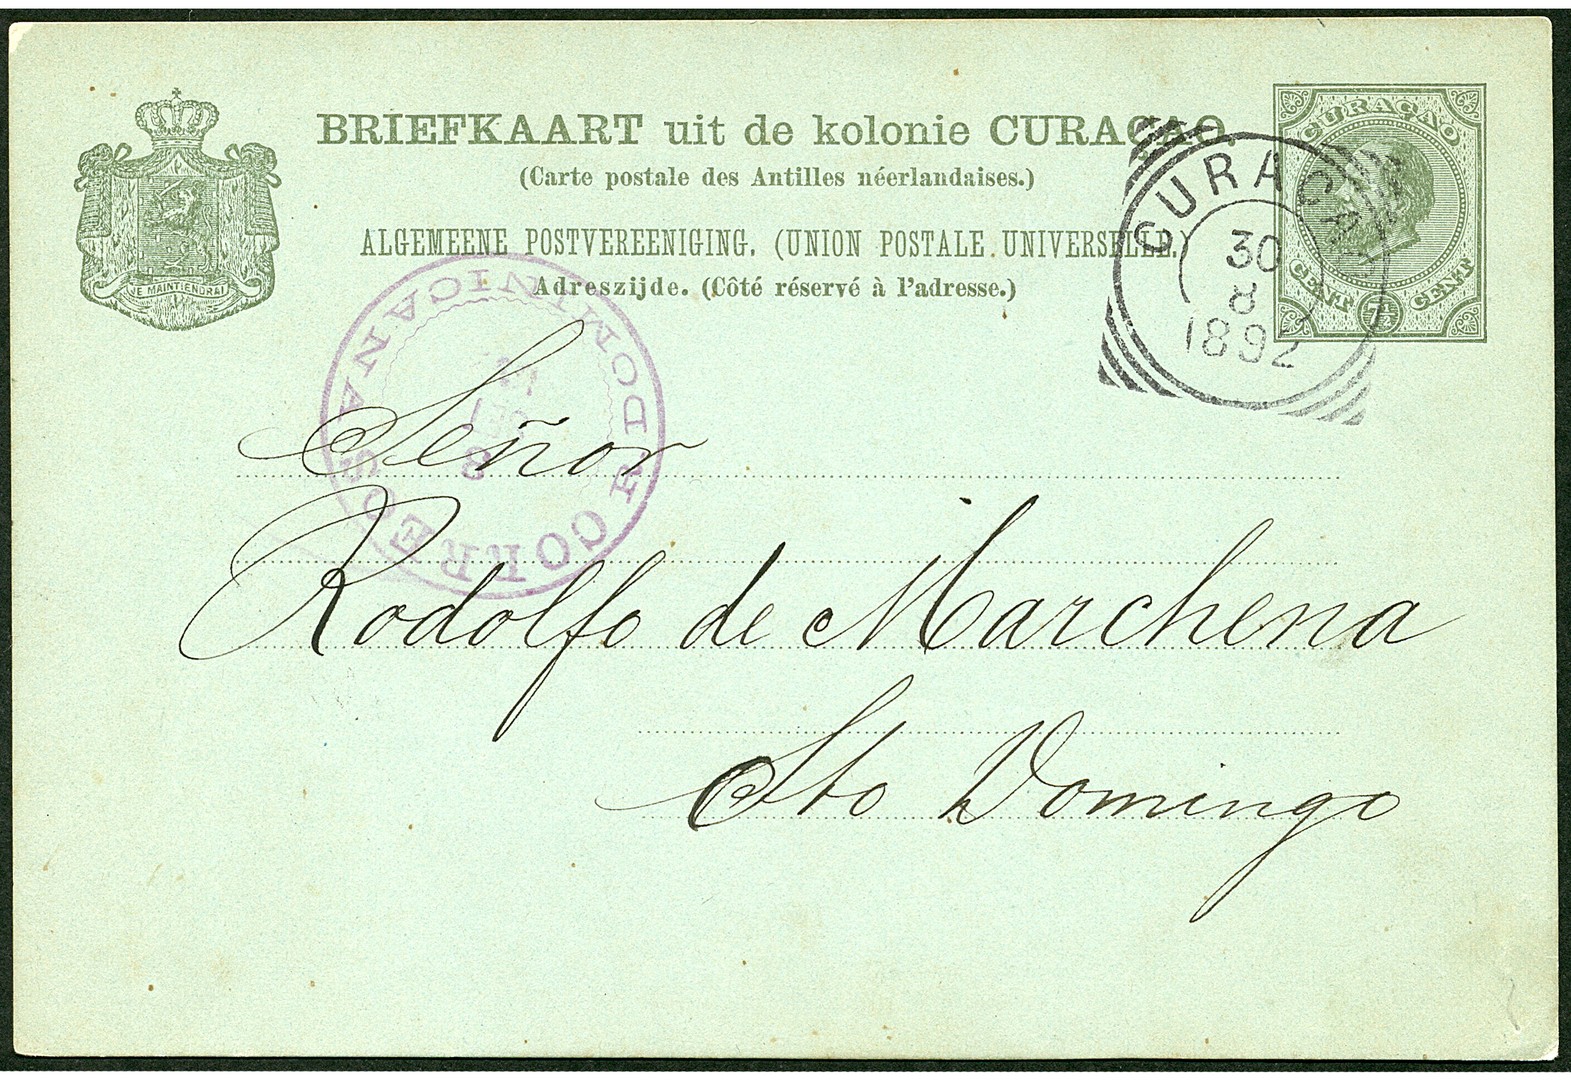 BRIEFKAART uit de kolonie CURAÇAO
(Carte postale des Antilles néerlandaises.)
ALGEMEENE POSTVEREENIGING. (UNION POSTALE UNIVERSELLE.)
Adreszijde. (Côté réservé à l'adresse.)
JE MAINTIENDRAI
CURAÇAO
CENT 7½ CENT
CURACAO
30
8
1892
CORREOS
R DOMINICANA
3
Señor
Rodolfo de Marchena
Sto Domingo